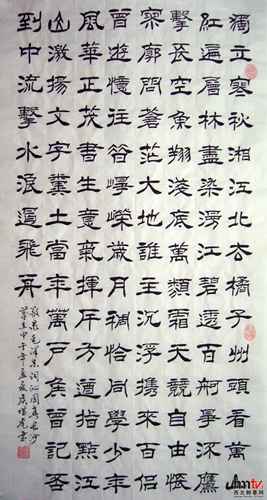 獨立寒秋湘江北去橘子州頭看萬
紅遍層林盡染漫江碧透百舸爭流鷹
擊長空魚翔淺底萬類霜天競自由悵
寥廓問蒼茫大地誰主沉浮攜來百侶
曾遊憶往昔崢嶸歲月稠恰同學少年
風華正茂書生意氣揮斥方遒指點江
山激揚文字糞土當年萬戶侯曾記否
到中流擊水浪遏飛舟
毛澤東詞沁園春長沙